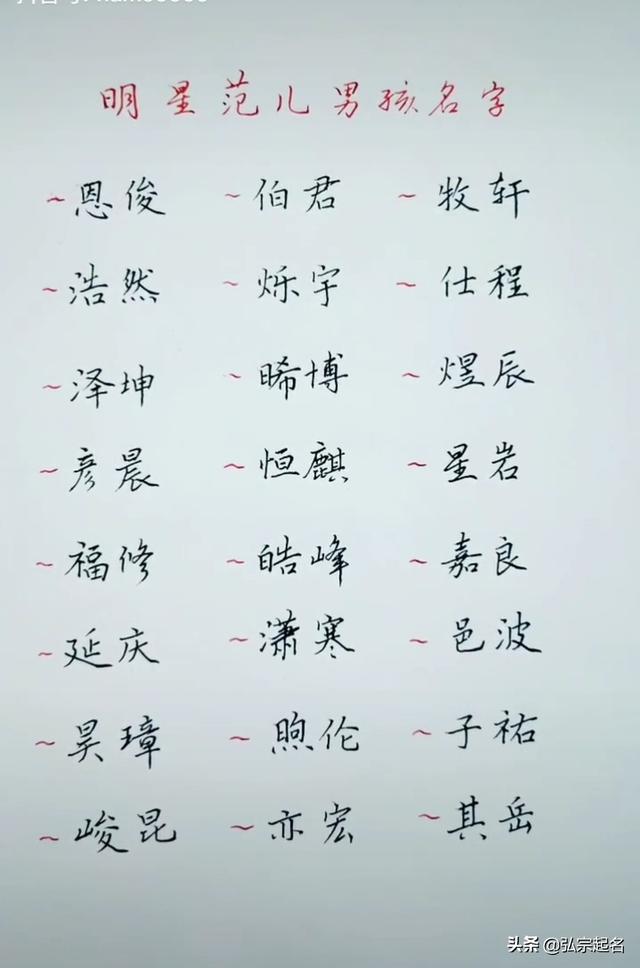 明星范儿男孩名字
~恩俊 ~伯君 ~牧轩
~浩然 ~烁宇 ~仕程
~泽坤 ~晞博 ~煜辰
~彦晨 ~恒麒 ~星岩
~福修 ~皓峰 ~嘉良
~延庆 ~潇寒 ~邑波
~昊璋 ~煦伦 ~子祐
~峻昆 ~亦宏 ~其岳
头条 @弘宗起名